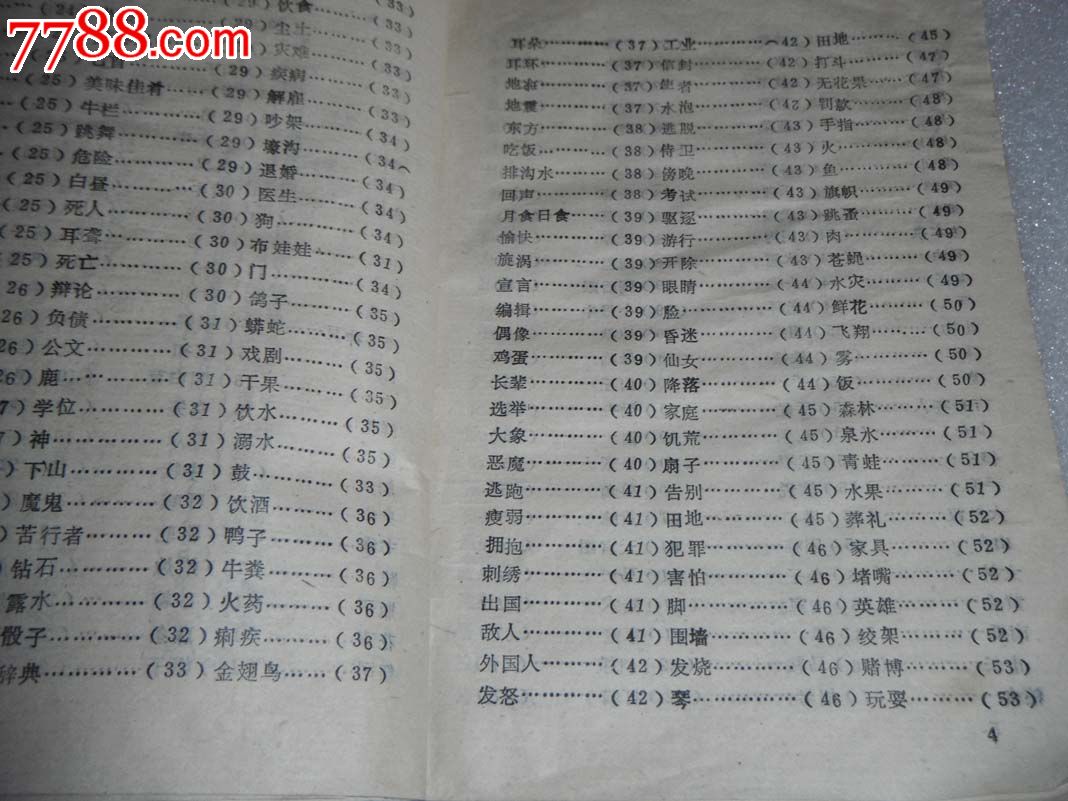 7788.com
饮食…………(33)
尘土…………(33)
灾难…………(33)
(29)疾病…………(33)
(25)美味佳肴……(29)解雇…………(33)
(25)牛栏…………(29)吵架…………(34)
(25)跳舞…………(29)壕沟…………(34)
(25)危险…………(29)退婚…………(34)
(25)白昼…………(30)医生…………(34)
(25)死人…………(30)狗……………(34)
(25)耳聋…………(30)布娃娃………(31)
25)死亡…………(30)门……………(34)
26)辩论…………(30)鸽子…………(35)
26)负债…………(31)蟒蛇…………(35)
26)公文…………(31)戏剧…………(35)
26)鹿……………(31)干果…………(35)
7)学位…………(31)饮水…………(35)
7)神……………(31)溺水…………(35)
)下山…………(31)鼓……………(33)
)魔鬼…………(32)饮酒…………(36)
)苦行者………(32)鸭子…………(36)
)钻石…………(32)牛粪…………(36)
露水…………(32)火药…………(36)
骰子…………(32)痢疾…………(36)
辞典…………(33)金翅鸟………(37)
耳朵…………(37)工业…………(42)田地…………(45)
耳环…………(37)信封…………(42)打斗…………(47)
(37)使者…………(42)无花果………(47)
地震…………(37)水泡…………(42)罚款…………(48)
东方…………(38)逃脱…………(43)手指…………(48)
吃饭…………(38)侍卫…………(43)火……………(48)
排沟水………(38)傍晚…………(43)鱼……………(48)
回声…………(38)考试…………(43)旗帜…………(49)
月食日食……(39)驱逐…………(43)跳蚤…………(49)
愉快…………(39)游行…………(43)肉……………(49)
旋涡…………(39)开除…………(43)苍蝇…………(49)
宣言…………(39)眼睛…………(44)水灾…………(49)
编辑…………(39)脸……………(44)鲜花…………(50)
偶像…………(39)昏迷…………(44)飞翔…………(50)
鸡蛋…………(39)仙女…………(44)雾……………(50)
长辈…………(40)降落…………(44)饭……………(50)
选举…………(40)家庭…………(45)森林…………(51)
大象…………(40)饥荒…………(45)泉水…………(51)
恶魔…………(40)扇子…………(45)青蛙…………(51)
逃跑…………(41)告别…………(45)水果…………(51)
瘦弱…………(41)田地…………(45)葬礼…………(52)
拥抱…………(41)犯罪…………(46)家具…………(52)
刺绣…………(41)害怕…………(46)堵嘴…………(52)
出国…………(41)脚……………(46)英雄…………(52)
敌人…………(41)围墙…………(46)绞架…………(52)
外国人………(42)发烧…………(46)赌博…………(53)
发怒…………(42)琴……………(46)玩耍…………(53)
4